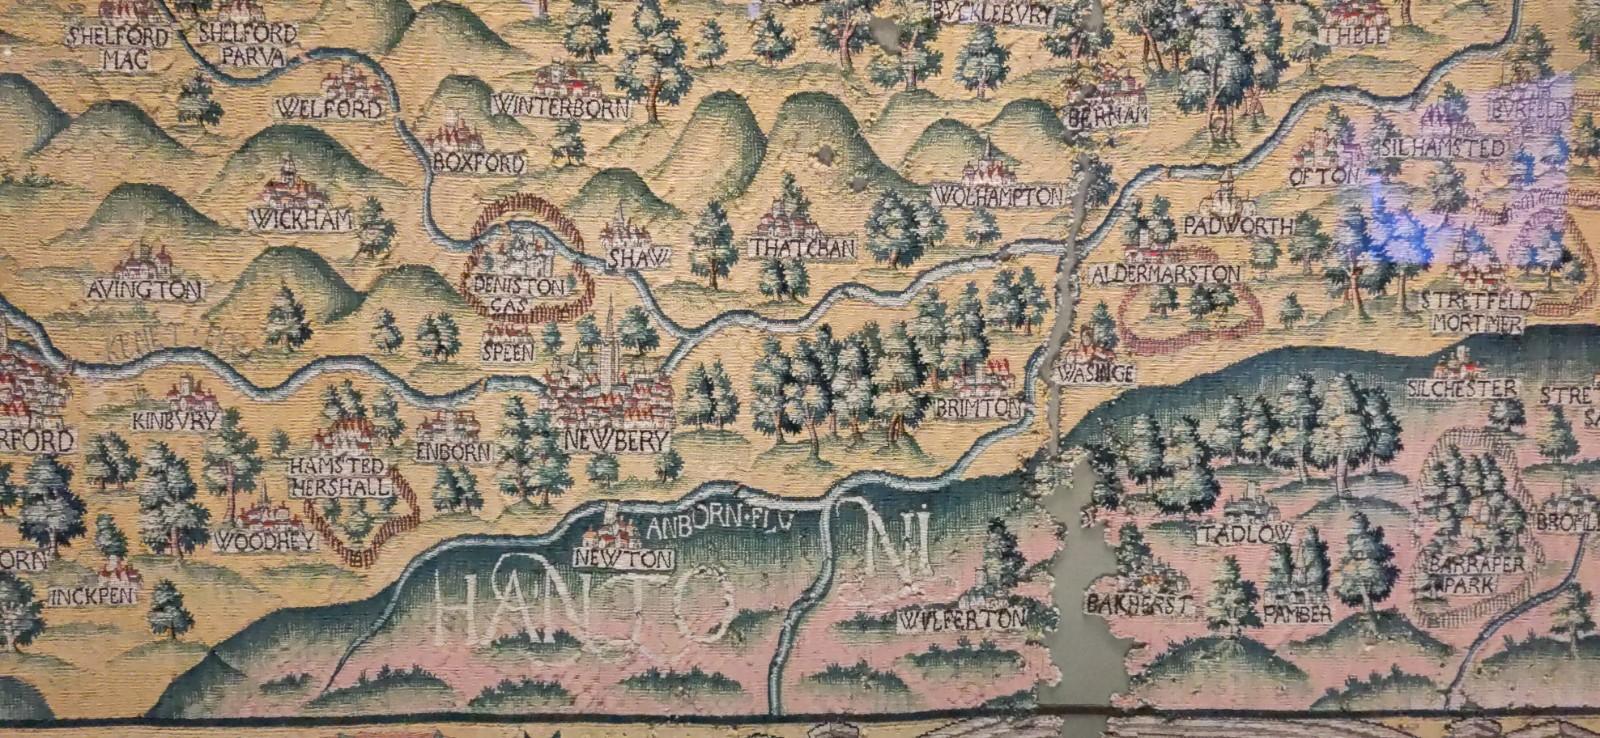 BVCKLEBVRY
SHELFORD
MAG
SHELFORD
PARVA
THELE
WELFORD
WINTERBORN
BERNAM
BVRFELD
BOXFORD
SILHAMSTED
OFTON
WICKHAM
WOLHAMPTON
PADWORTH
AVINGTON
SHAW
THATCHAN
ALDERMARSTON
DENISTON
CAS
STRETFELD
MORTIMER
KENET
SPEEN
WASINGE
SILCHESTER
STRE
SA
KINBVRY
BRIMTON
RFORD
ENBORN
NEWBERY
HAMSTED
MERSHALL
WOODHEY
ANBORN·FLV
NEWTON
TADLOW
BROML
ORN
INCKPEN
HANTO
NI
BARRAPER
PARK
WVLFERTON
BAKHERST
PAMBER